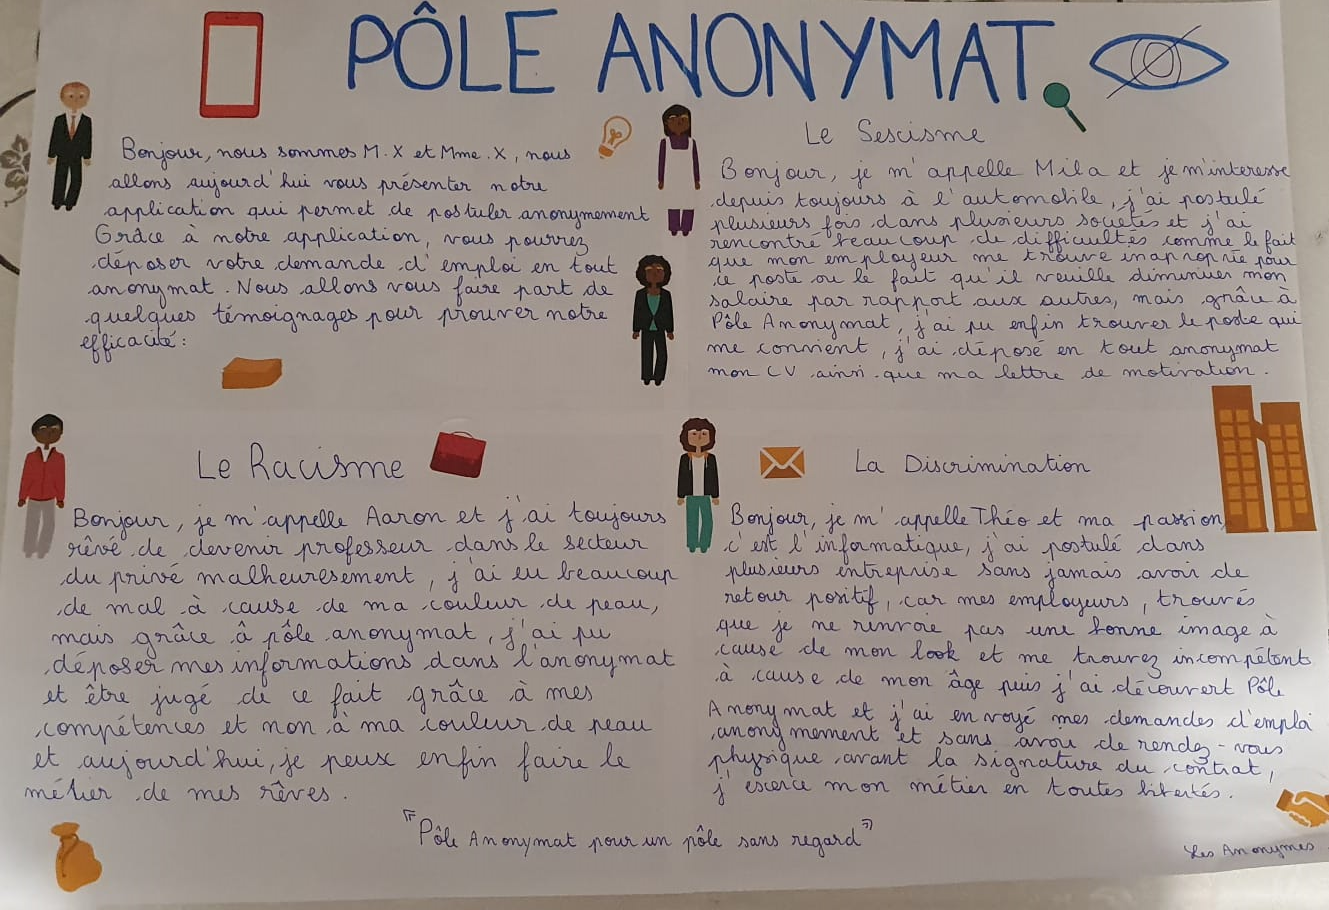 PÔLE ANONYMAT
Bonjour, nous sommes M. X et Mme. X, nous
allons aujourd'hui vous présenter notre
application qui permet de postuler anonymement
Grâce à notre application, vous pourrez
déposer votre demande d'emploi en tout
anonymat. Nous allons vous faire part de
quelques témoignages pour prouver notre
efficacité :
Le Sescisme
Bonjour, je m'appelle Mila et je m'interesse
depuis toujours à l'automobile, j'ai postulé
plusieurs fois dans plusieurs sociétés et j'ai
rencontré beaucoup de difficultés comme le fait
que mon employeur me trouve inapropriée pour
ce poste ou le fait qu'il veuille diminuer mon
salaire par rapport aux autres, mais grâce à
Pôle Anonymat, j'ai pu enfin trouver le poste qui
me convient, j'ai déposé en tout anonymat
mon CV ainsi que ma lettre de motivation.
Le Racisme
Bonjour, je m'appelle Aaron et j'ai toujours
rêvé de devenir professeur dans le secteur
du privé malheuresement, j'ai eu beaucoup
de mal à cause de ma couleur de peau,
mais grâce à pôle anonymat, j'ai pu
déposer mes informations dans l'anonymat
et être jugé de ce fait grâce à mes
compétences et non à ma couleur de peau
et aujourd'hui, je peux enfin faire le
métier de mes rêves.
La Discrimination
Bonjour, je m'appelle Théo et ma passion
c'est l'informatique, j'ai postulé dans
plusieurs entreprise sans jamais avoir de
retour positif, car mes employeurs, trouvés
que je ne renvoie pas une bonne image à
cause de mon look et me trouvez incompétents
à cause de mon âge puis j'ai découvert Pôle
Anonymat et j'ai envoyé mes demandes d'emploi
anonymement et sans avoir de rendez-vous
physique avant la signature du contrat,
j'escerce mon métier en toutes libertés.
"Pôle Anonymat pour un pôle sans regard"
Les Anonymes